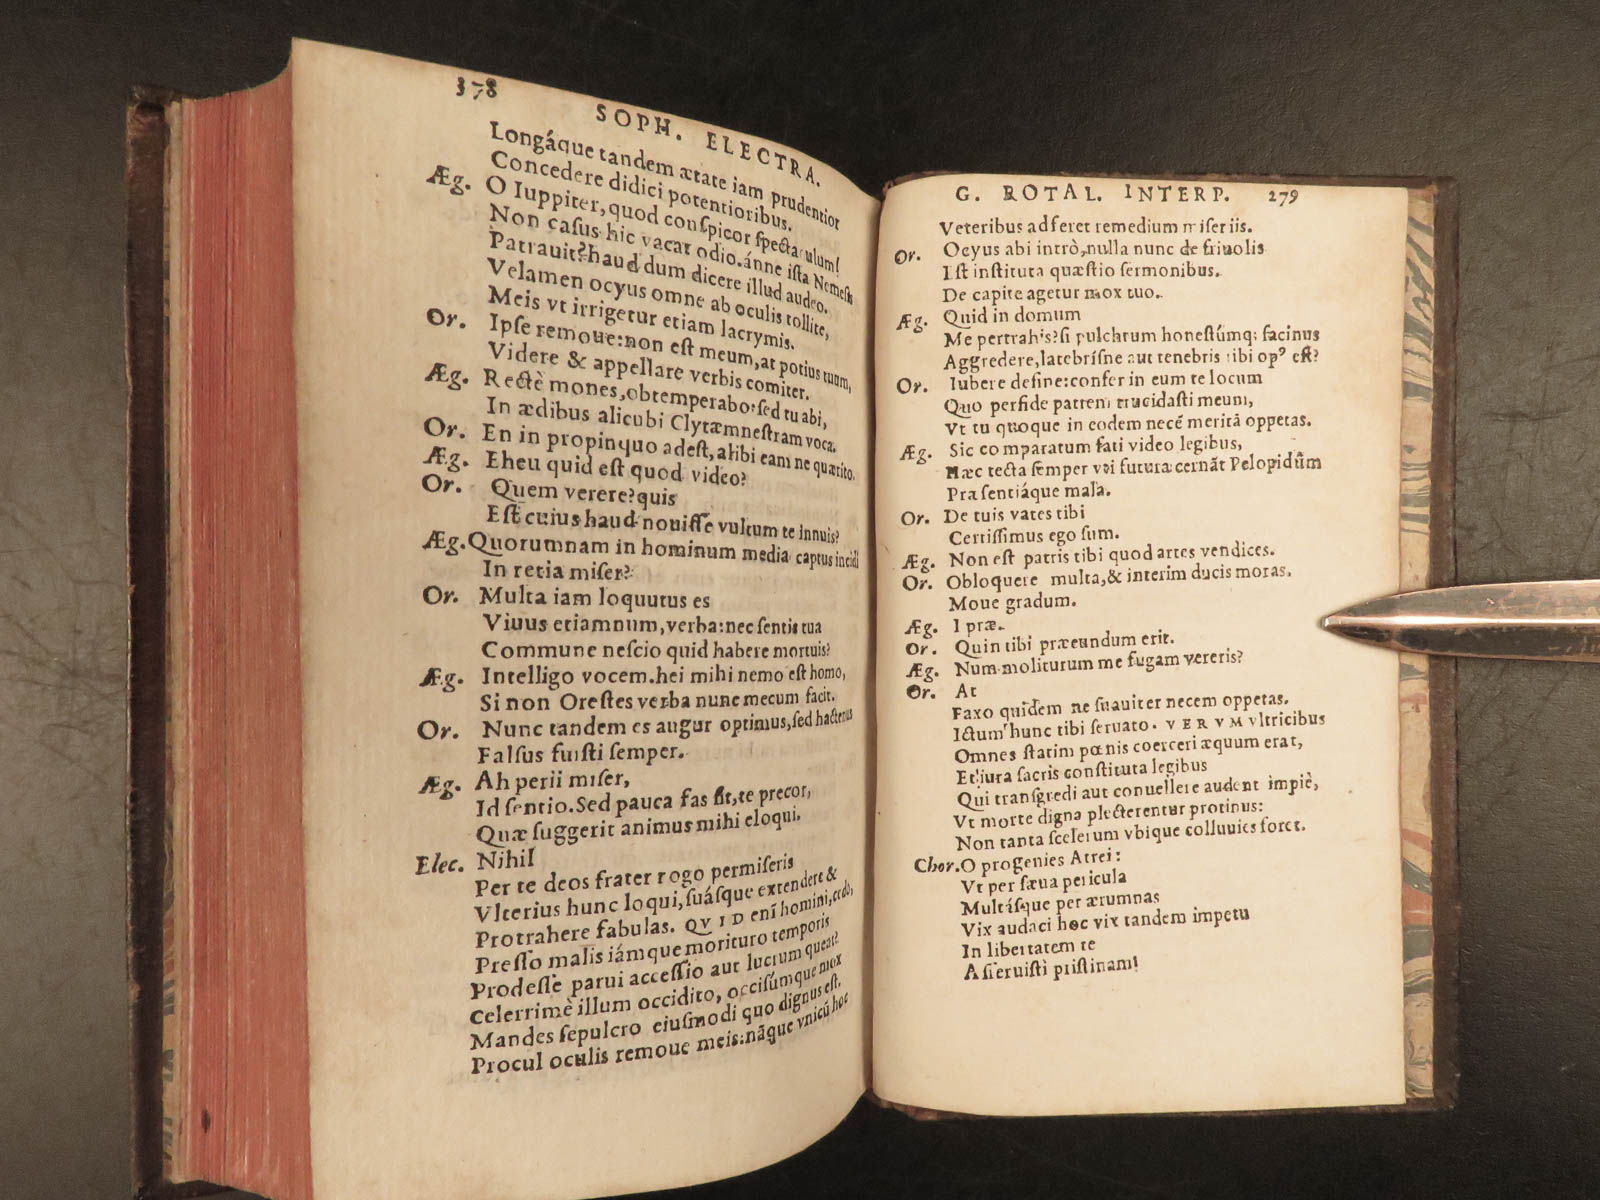 378
SOPH. ELECTRA.
Longáque tandem ætate iam prudentior
Concedere didici potentioribus.
Æg. O Iuppiter, quod conspicor spectaculum!
Non casus hic vacat odio. ánne ista Nemesis
Patrauit? haud dum dicere illud audeo.
Velamen ocyus omne ab oculis tollite,
Meis vt irrigetur etiam lacrymis.
Or. Ipse remoue: non est meum, at potius tuum,
Videre & appellare verbis comiter.
Æg. Rectè mones, obtemperabo: sed tu abi,
In ædibus alicubi Clytæmnestram voca.
Or. En in propinquo adest, alibi eam ne quærito.
Æg. Eheu quid est quod video?
Or. Quem verere? quis
Est cuius haud nouisse vultum te innuis?
Æg. Quorumnam in hominum media captus incidi
In retia miser?
Or. Multa iam loquutus es
Viuus etiamnum, verba: nec sentis tua
Commune nescio quid habere mortuis?
Æg. Intelligo vocem. hei mihi nemo est homo,
Si non Orestes verba nunc mecum facit.
Or. Nunc tandem es augur optimus, sed hactenus
Falsus fuisti semper.
Æg. Ah perii miser,
Id sentio. Sed pauca fas sit, te precor,
Quæ suggerit animus mihi eloqui.
Elec. Nihil
Per te deos frater rogo permiseris
Vlterius hunc loqui, suásque extendere &
Protrahere fabulas. QVID enī homini, cedo,
Presso malis iámque morituro temporis
Prodesse parui accessio aut lucrum queat?
Celerrimè illum occidito, occisúmque mox
Mandes sepulcro eiusmodi quo dignus est,
Procul oculis remoue meis: nāque vnicū hoc
G. ROTAL. INTERP. 279
Veteribus adferet remedium miseriis.
Or. Ocyus abi intrò, nulla nunc de friuolis
Ist instituta quæstio sermonibus.
De capite agetur mox tuo.
Æg. Quid in domum
Me pertrahis? si pulchrum honestúmq; facinus
Aggredere, latebrísne aut tenebris tibi opꝰ est?
Or. Iubere desine: confer in eum te locum
Quo perfide patrem trucidasti meum,
Vt tu quoque in eodem necē meritā oppetas.
Æg. Sic comparatum fati video legibus,
Hæc tecta semper vti futura cernāt Pelopidûm
Præsentiáque mala.
Or. De tuis vates tibi
Certissimus ego sum.
Æg. Non est patris tibi quod artes vendices.
Or. Obloquere multa, & interim ducis moras.
Moue gradum.
Æg. I præ.
Or. Quin tibi præeundum erit.
Æg. Num moliturum me fugam vereris?
Or. At
Faxo quidem ne suauiter necem oppetas.
Ictum hunc tibi seruato. VERVM vltricibus
Omnes statim pœnis coerceri æquum erat,
Et iura sacris constituta legibus
Qui transgredi aut conuellere audent impiè,
Vt morte digna plecterentur protinus:
Non tanta scelerum vbique colluuies foret.
Chor. O progenies Atrei:
Vt per sæua pericula
Multásque per ærumnas
Vix audaci hoc vix tandem impetu
In libertatem te
Asseruisti pristinam!